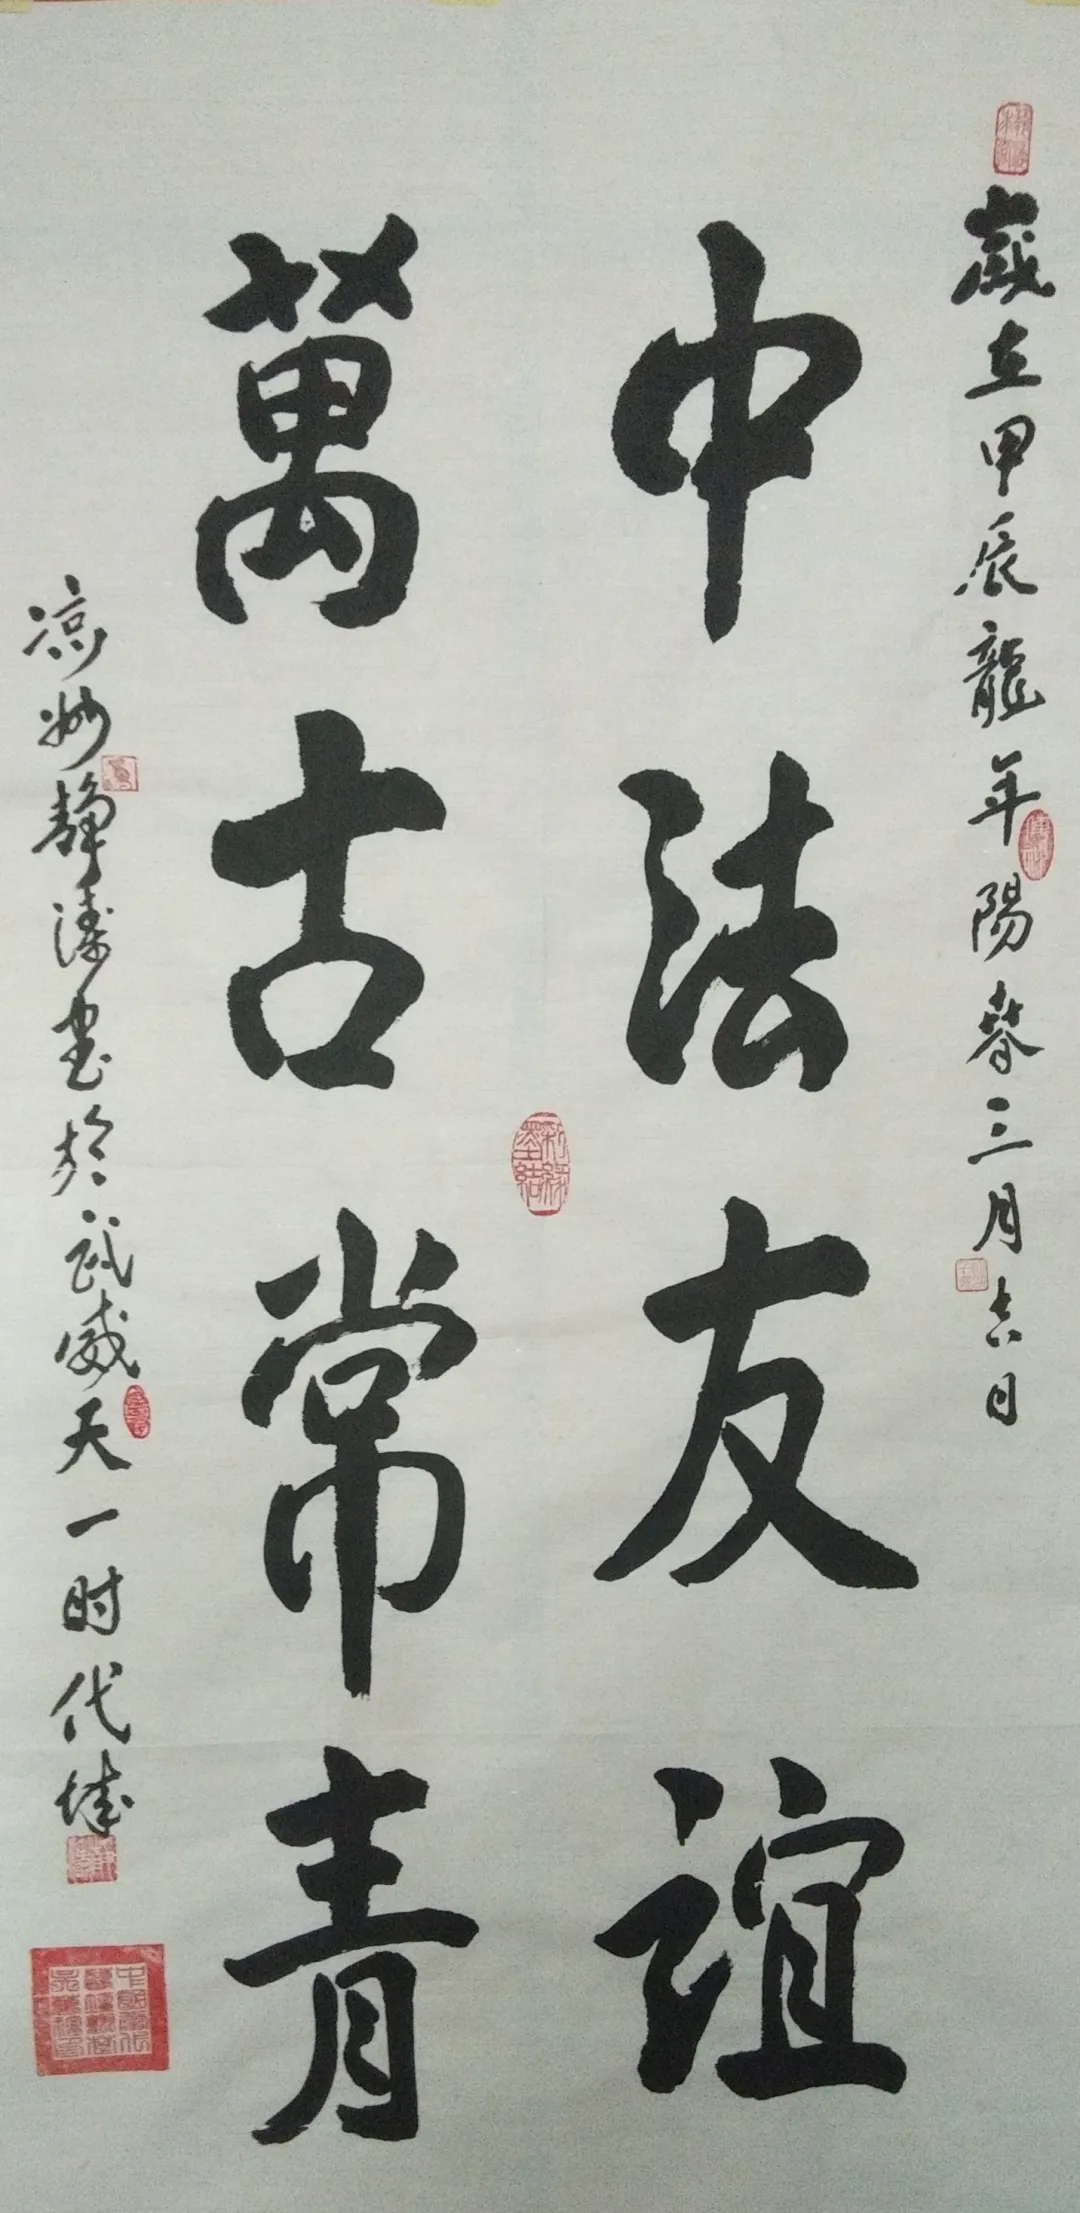 歲在甲辰龍年陽春三月吉日
中法友谊
萬古常青
凉州静涛書於武威天一时代城